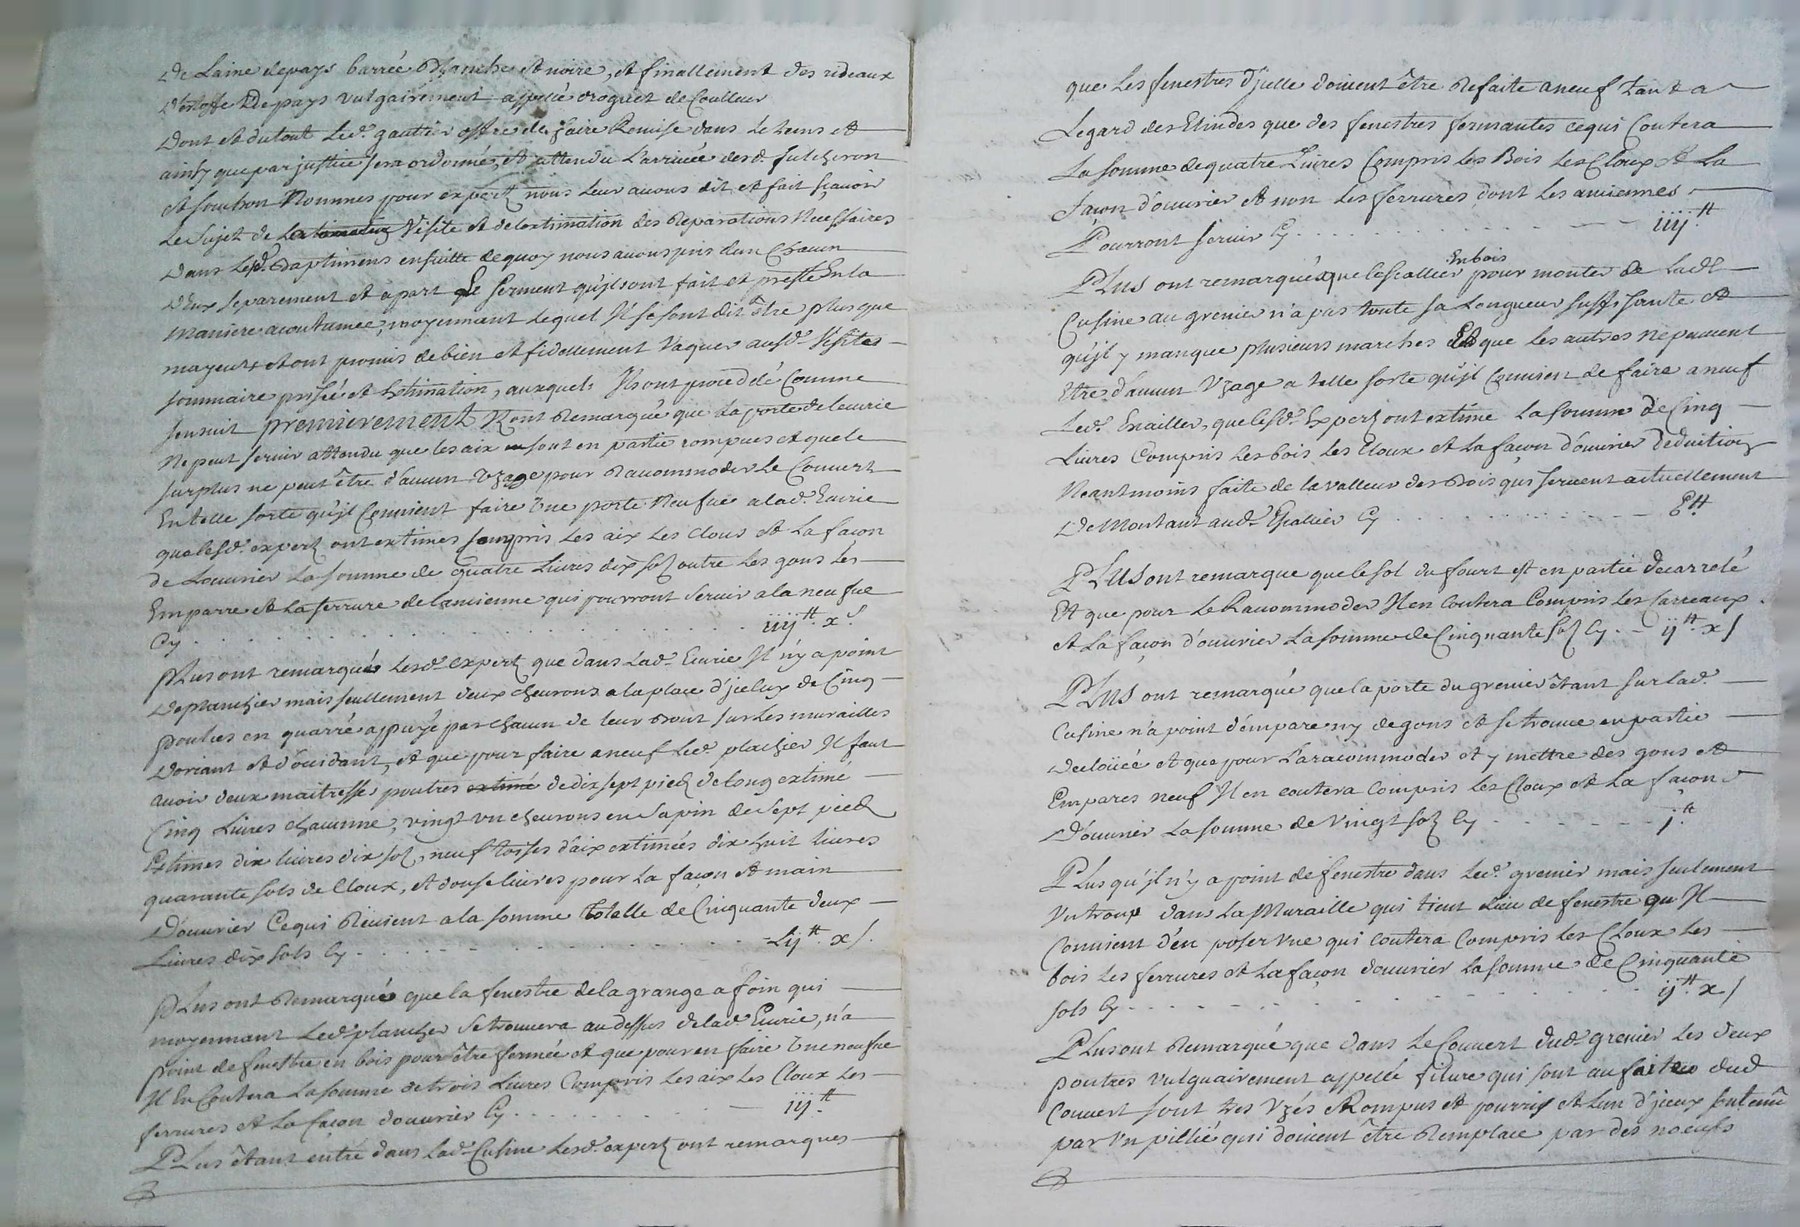 de Laine depays barrée Blanche et noire, et finallement des rideaux
d'Estoffe de pays vulgairement appellé droguet de Coulleur
Dont et dutout led. gautier offre de faire Remise dans le tems et
ainsy que par justice sera ordonné, et attendu L'arrivée desd. futcheron
et souchon Nommes pour expert nous leur avons dit et fait sçavoir
Le Sujet de Visite et de lextimation des Reparations Necessaires
Dans lesd. Baptimens ensuitte dequoy nous avons pris dun Chacun
d'Eux separement et apart Le Serment qu'ils ont fait et presté En la
maniere acoutumée, moyennant lequel Il se sont dit être plus que
mayeurs et ont promis de bien et fidellement Vaquer ausd. Visites
sommaire prisée et Estimation, auxquels Ils ont procedé Comme
sensuit premierement Ront Remarqué que la porte de leurie
Ne peut servir attendu que les aix sont en partie rompues et que le
surplus ne peut être d'aucun Uzage pour Racommoder le Couvert
En telle sorte qu'jl Convient faire Une porte Neufue a lad. Eurie
que lesd. expertz ont extimes Compris Les aix Les Clous et La façon
de Louvrier La somme de quatre Livres dix solz outre les gons les
Emparre et La serrure de lancienne qui pourront servir a la neufue
Cy . . . . . . iiij₶. x s.
Plus ont remarqués lesd. expertz que dans Lad. Eurie Il n'y a point
de plancher mais seullement deux chevrons a la place d'jceluy de Cinq
poulces en quarré appuyé par chacun de leur Bout sur Les murailles
Doriant et d'ocidant, et que pour faire a neuf Led. placher Il faut
avoir deux maitresses poutres de dix sept piedz de long extimé
Cinq Livres chacunne, vingt vn chevrons en Sapin de sept piedz
Estimes dix livres dix solz, neuf toises d'aix extimées dix huit livres
quarante sols de Cloux, et douse livres pour La façon et main
D'ouvrier Cequi Revient a la somme totelle de Cinquante deux
Livres dix sols Cy . . . . . . Lij₶. x s.
Plus ont Remarqué que la fenestre de la grange a foin qui
moyennant Led. plancher se trouvera au dessus de lad. Eurie, n'a
point de fenestre en bois pour être fermée et que pour en faire Une neufue
Il En Coutera La somme de trois Livres Compris Les aix Les Cloux Les
ferrures et La façon douvrier Cy . . . . . . iij₶.
Plus étant entré dans lad. Cusine Lesd. expertz ont remarques
que Les fenestres d'jcelle doivent être Refaite aneuf Tant a
Legard des Elindes que des fenestres fermantes cequi Coutera
La somme de quatre Livres Compris Les Bois Les Cloux et La
façon d'ouvrier et non Les ferrures dont Les anciennes
Pourront servir Cy . . . . . . iiij₶
Plus ont remarqué que Lescallier En bois pour monter de Lad.
Cusine au grenier n'a pas toute sa Longueur suffisante et
qu'jl y manque plusieurs marches Et que Les autres Nepeuvent
Etre d'aucun Uzage a telle sorte qu'jl Convient de faire aneuf
Led. Escallier, que lesd. Expertz ont extimé La somme de Cinq
Livres Compris Les bois Les Cloux et La façon d'ouvrier deduction
Neantmoins faite de la valleur des Bois qui servent actuellement
de Montant aud. Escalier Cy . . . . . . ₶
Plus ont remarque que le sol du fourt est en partie decarrelé
Et que pour Le Racommoder Il en Coutera Compris Les Carreaux
et La façon d'ouvrier La somme de Cinquante solz Cy . - ij₶. x s
Plus ont remarqué que la porte du grenier étant sur lad.
Cusine n'a point d'empare ny de gons et se trouve en partie
declouée et que pour La racommoder et y mettre des gons et
Empares neuf Il en coutera Compris Les Cloux et La façon
D'ouvrier La somme de Vingt solz Cy . . . . . . j₶
Plus qu'jl n'y a point de fenestre dans Led. grenier mais seulement
Un troup dans La Muraille qui tient Lieu de fenestre qu Il
Convient d'en poser Une qui coutera Compris Les Cloux Les
bois Les ferrures et La façon douvrier La somme de Cinquante
sols Cy . . . . . . ij₶. x s
Plus ont Remarqué que dans Le Couvert dud. grenier Les deux
poutres Vulguairement appellé filure qui sont au faite dud
Couvert sont tres Uzés et Rompus et pourris et Lun d'jceux soutenu
par Un pillié qui doivent être Remplacé par des noeufs